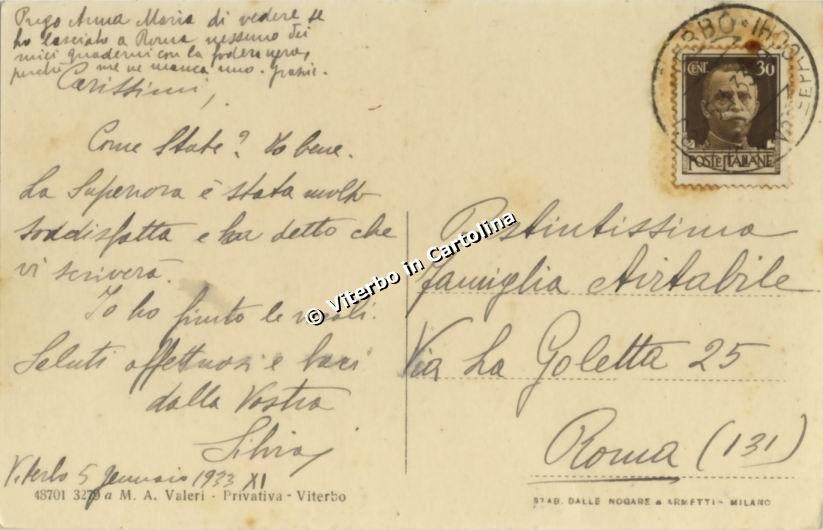 Prego Anna Maria di vedere se
ho lasciato a Roma nessuno dei
miei quaderni con la fodera nera,
perchè me ne manca uno. grazie.
Carissimi,
Come State? Io bene.
La Superiora è stata molto
soddisfatta e ha detto che
vi scriverà.
Io ho finito le
Saluti affettuosi e baci
dalla Vostra
Silvia
Viterbo 5 Gennaio 1933 XI
48701 3279 a M. A. Valeri - Privativa - Viterbo
CENT. 30
POSTE ITALIANE
VITERBO
© Viterbo in Cartolina
Distintissima
famiglia Airtabile
Via La Goletta 25
Roma (131)
STAB. DALLE NOGARE & ARMETTI - MILANO